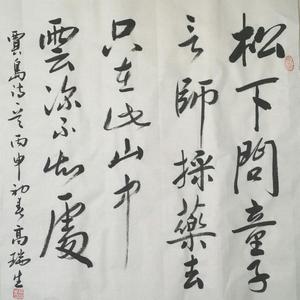 松下問童子
言師採藥去
只在此山中
雲深不知處
賈島詩意丙申初春高瑞生